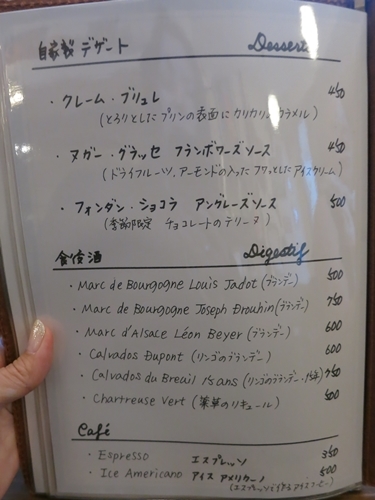 自家製 デザート Desserts
・クレーム・ブリュレ 450
(とろりとしたプリンの表面にカリカリカラメル)
・ヌガー・グラッセ フランボワーズソース 450
(ドライフルーツ、アーモンドの入ったフワッとしたアイスクリーム)
・フォンダン・ショコラ アングレーズソース 500
(季節限定 チョコレートのテリーヌ)
食後酒 Digestif
・Marc de Bourgogne Louis Jadot (ブランデー) 500
・Marc de Bourgogne Joseph Drouhin (ブランデー) 750
・Marc d'Alsace Léon Beyer (ブランデー) 600
・Calvados Dupont (リンゴのブランデー) 600
・Calvados du Breuil 15ans (リンゴのブランデー・15年) 750
・Chartreuse Vert (薬草のリキュール) 500
Café
・Espresso エスプレッソ 350
・Ice Americano アイス アメリカーノ 500
(エスプレッソで作るアイスコーヒー)